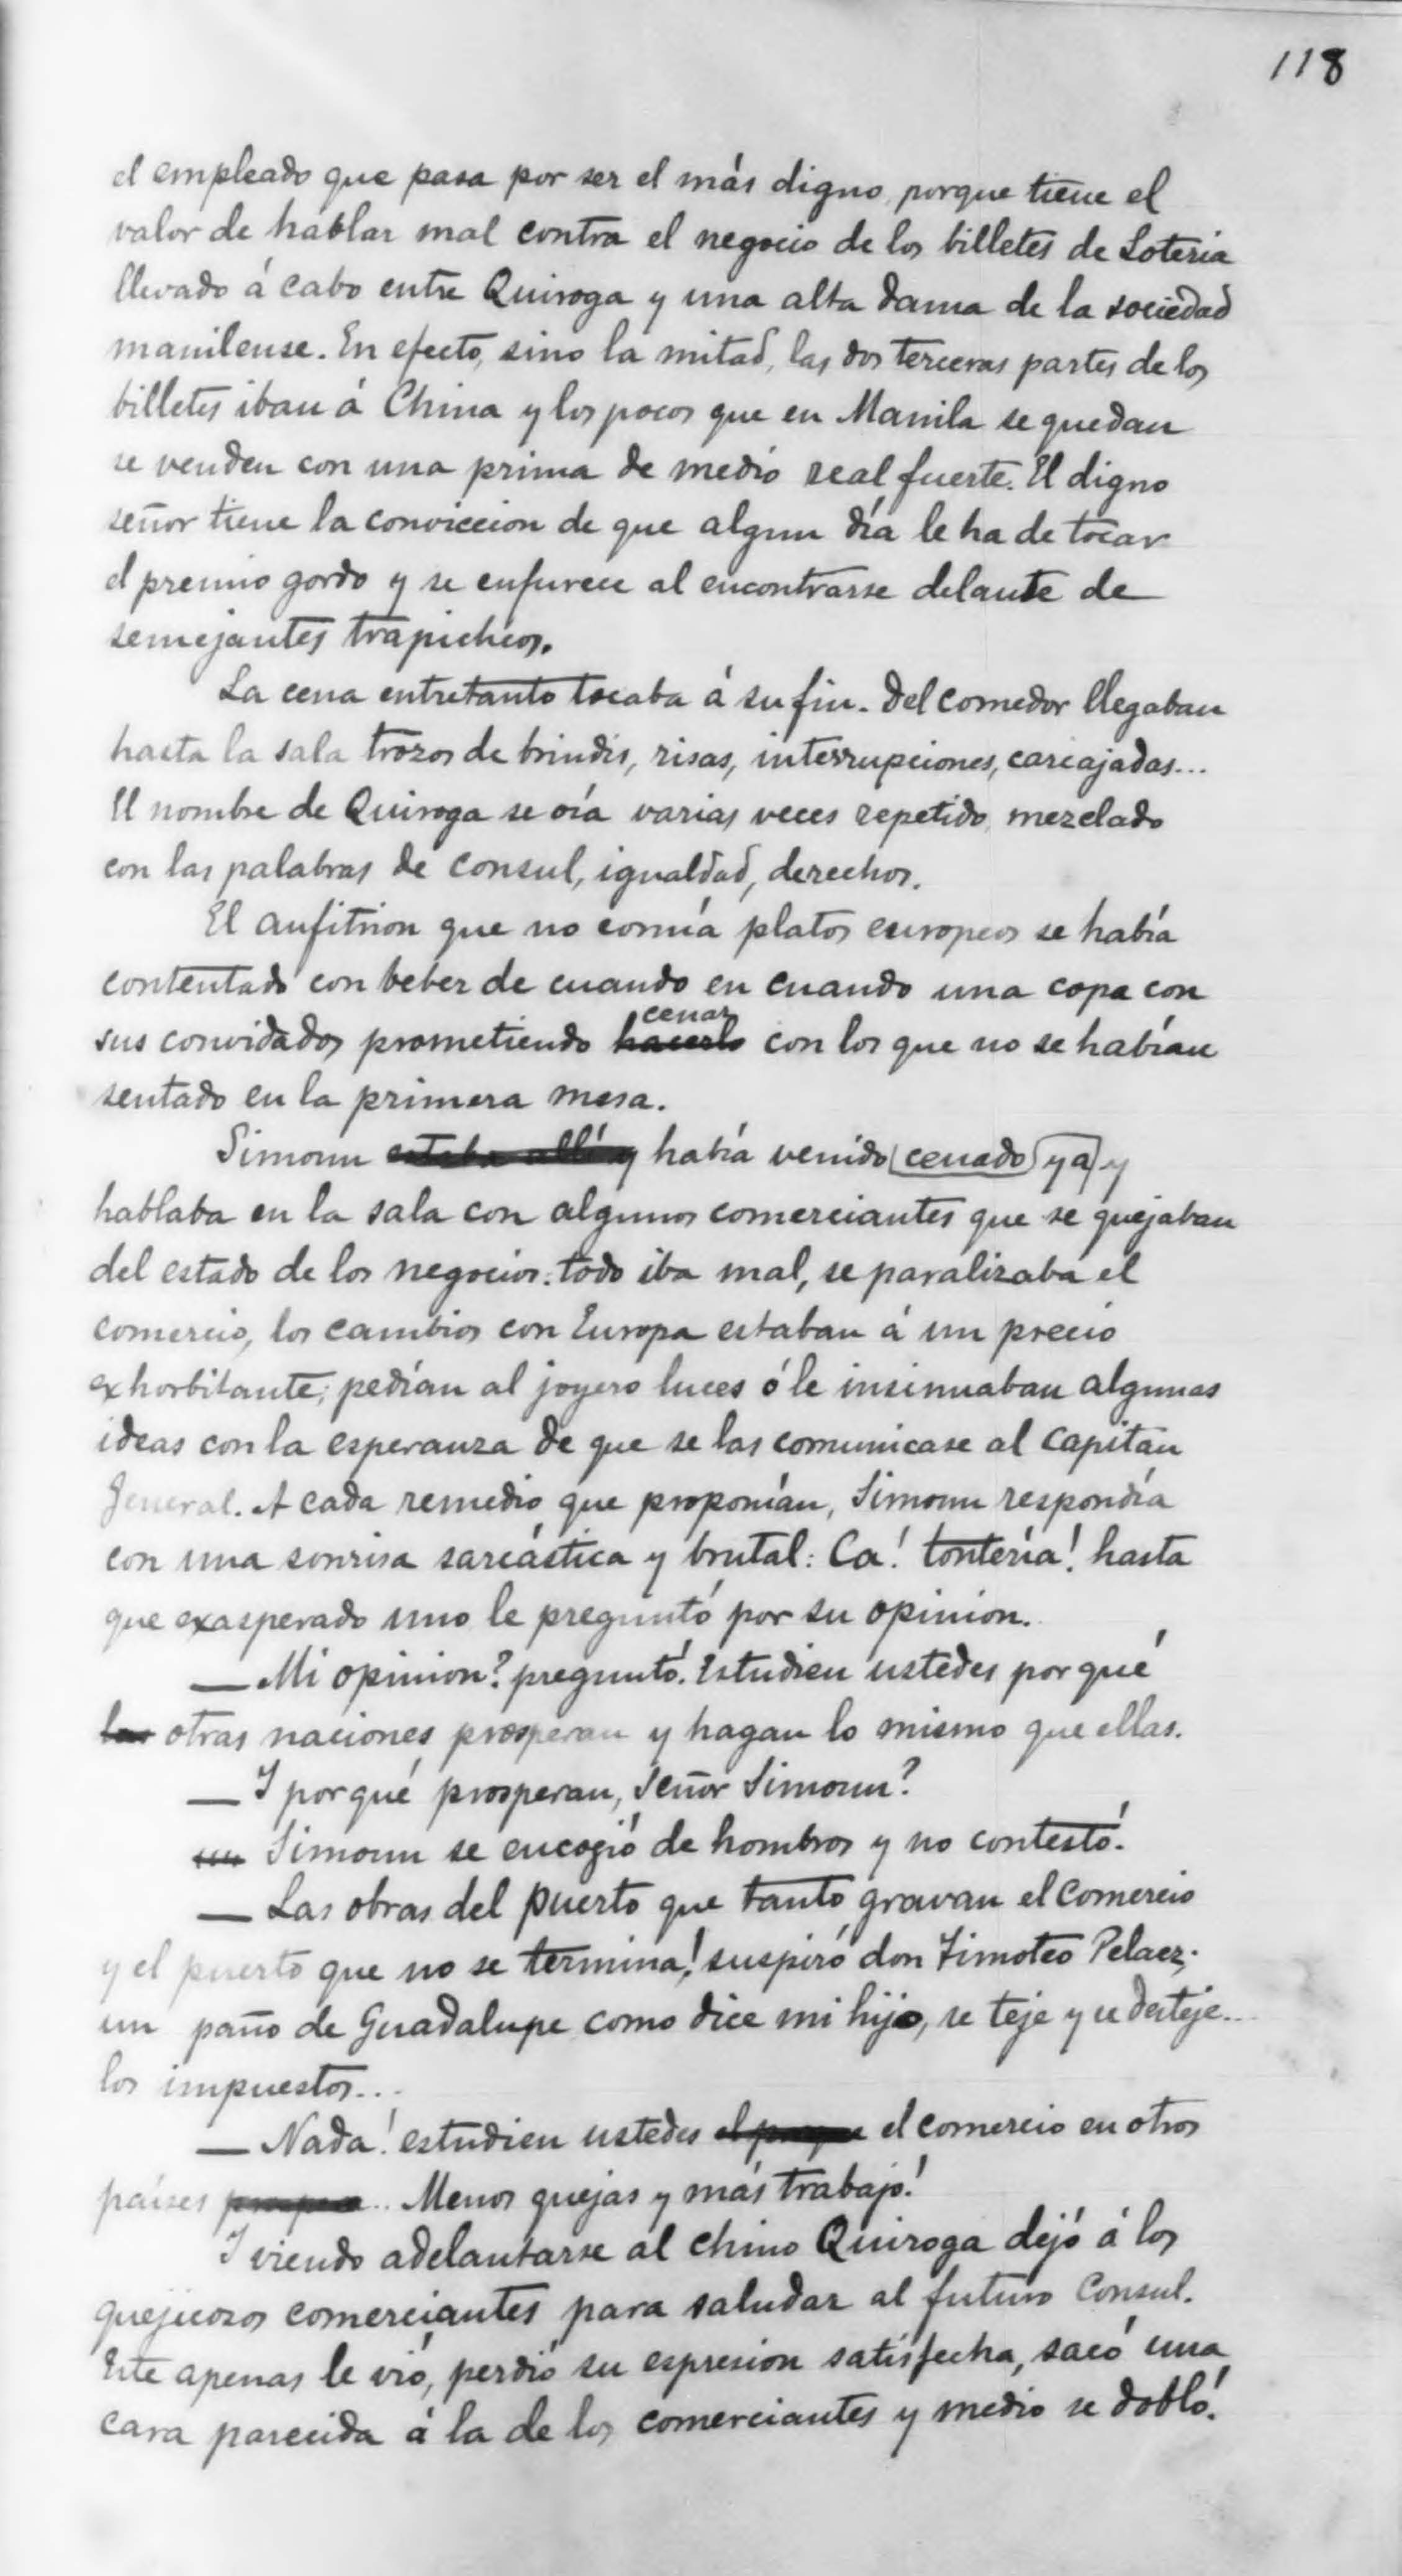 118
el empleado que pasa por ser el más digno, porque tiene el
valor de hablar mal contra el negocio de los billetes de Lotería
llevado á cabo entre Quiroga y una alta dama de la sociedad
manilense. En efecto, sino la mitad, las dos terceras partes de los
billetes iban á China y los pocos que en Manila se quedan
se venden con una prima de medio real fuerte. El digno
señor tiene la conviccion de que algun día le ha de tocar
el premio gordo y se enfurece al encontrarse delante de
semejantes trapicheos.
La cena entretanto tocaba á su fin. Del comedor llegaban
hasta la sala trozos de brindis, risas, interrupciones, carcajadas...
El nombre de Quiroga se oía varias veces repetido, mezclado
con las palabras de Consul, igualdad, derechos.
El anfitrion que no comía platos europeos se había
contentado con beber de cuando en cuando una copa con
cenar
sus convidados prometiendo hacerlo con los que no se habían
sentado en la primera mesa.
Simoun estaba allí y había venido cenado ya y
hablaba en la sala con algunos comerciantes que se quejaban
del estado de los negocios: todo iba mal, se paralizaba el
comercio, los cambios con Europa estaban á un precio
exhorbitante; pedían al joyero luces ó le insinuaban algunas
ideas con la esperanza de que se las comunicase al Capitan
General. A cada remedio que proponían, Simoun respondía
con una sonrisa sarcástica y brutal: Ca! tontería! hasta
que exasperado uno le preguntó por su opinion.
— Mi opinion? preguntó. Estudien ustedes por qué
las otras naciones prosperan y hagan lo mismo que ellas.
— Y por qué prosperan, Señor Simoun?
Simoun se encogió de hombros y no contestó.
— Las obras del puerto que tanto gravan el Comercio
y el puerto que no se termina! suspiró don Timoteo Pelaez;
un paño de Guadalupe como dice mi hijo, se teje y se desteje...
los impuestos...
— Nada! estudien ustedes el porque el comercio en otros
países prospera.. Menos quejas y más trabajo!
Y viendo adelantarse al chino Quiroga dejó á los
quejicosos comerciantes para saludar al futuro Consul.
Este apenas le vió, perdió su espresion satisfecha, sacó una
cara parecida á la de los comerciantes y medio se dobló.